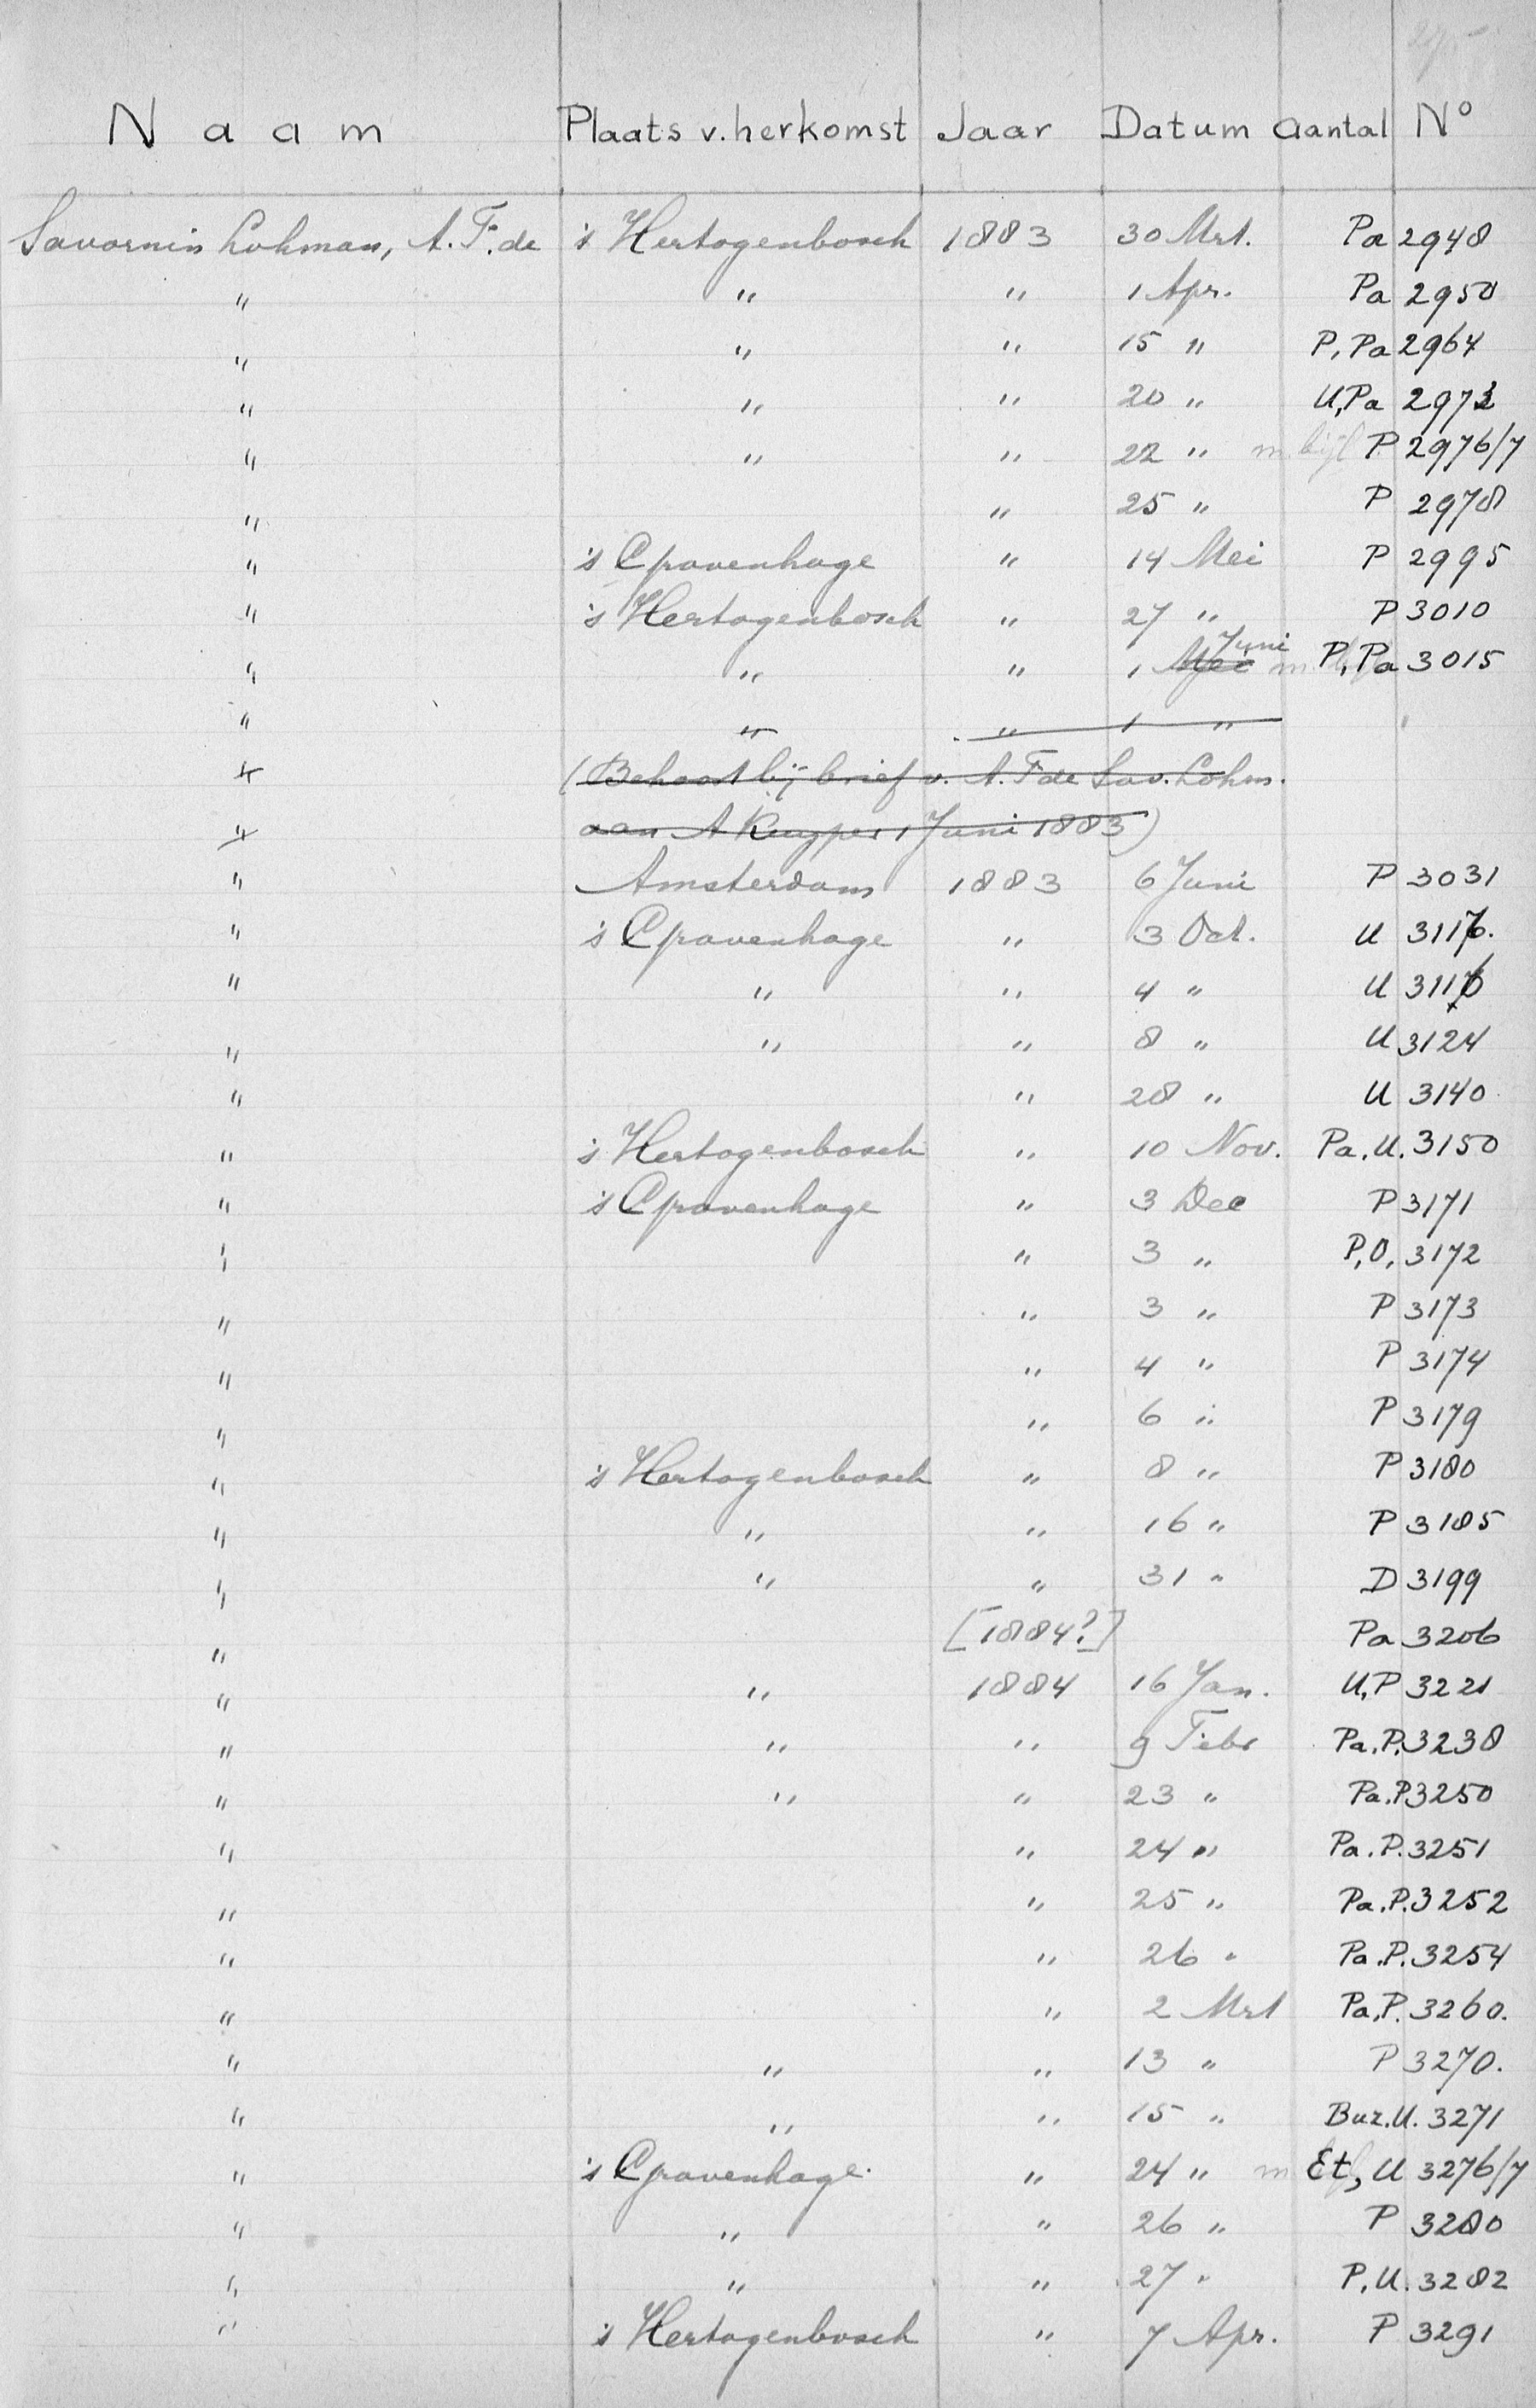 Naam Plaats v. herkomst Jaar Datum Aantal No
Savornin Lohman, A. F. de 's Hertogenbosch 1883 30 Mrt. Pa 2948
" " " 1 Apr. Pa 2950
" " " 15 " P, Pa 2964
" " " 20 " U, Pa 2973
" " " 22 " m. bijl P 2976/7
" " 25 " P 2978
" 's Gravenhage " 14 Mei P 2995
" 's Hertogenbosch " 27 " P 3010
" " " 1 Mei Juni P, Pa 3015
" " " 1 "
" (Behoort bij brief v. A. F. de Sav. Lohm.
" aan A Kuyper 1 Juni 1883)
" Amsterdam 1883 6 Juni P 3031
" 's Gravenhage " 3 Oct. U
" " " 4 " U
" " " 8 " U 3124
" " 28 " U 3140
" 's Hertogenbosch " 10 Nov. Pa. U. 3150
" 's Gravenhage " 3 Dec P 3171
" " 3 " P, O, 3172
" " 3 " P 3173
" " 4 " P 3174
" " 6 " P 3179
" 's Hertogenbosch " 8 " P 3180
" " " 16 " P 3185
" " " 31 " D 3199
" [1884?] Pa 3206
" " 1884 16 Jan. U, P 3221
" " " 9 Febr Pa. P. 3238
" " " 23 " Pa. P 3250
" " 24 " Pa. P. 3251
" " 25 " Pa. P. 3252
" " 26 " Pa. P. 3254
" " 2 Mrt Pa, P. 3260.
" " " 13 " P 3270.
" " " 15 " Buz. U. 3271
" 's Gravenhage. " 24 " m Et, U 3276/7
" " " 26 " P 3280
" " " 27 " P, U. 3282
" 's Hertogenbosch " 7 Apr. P 3291